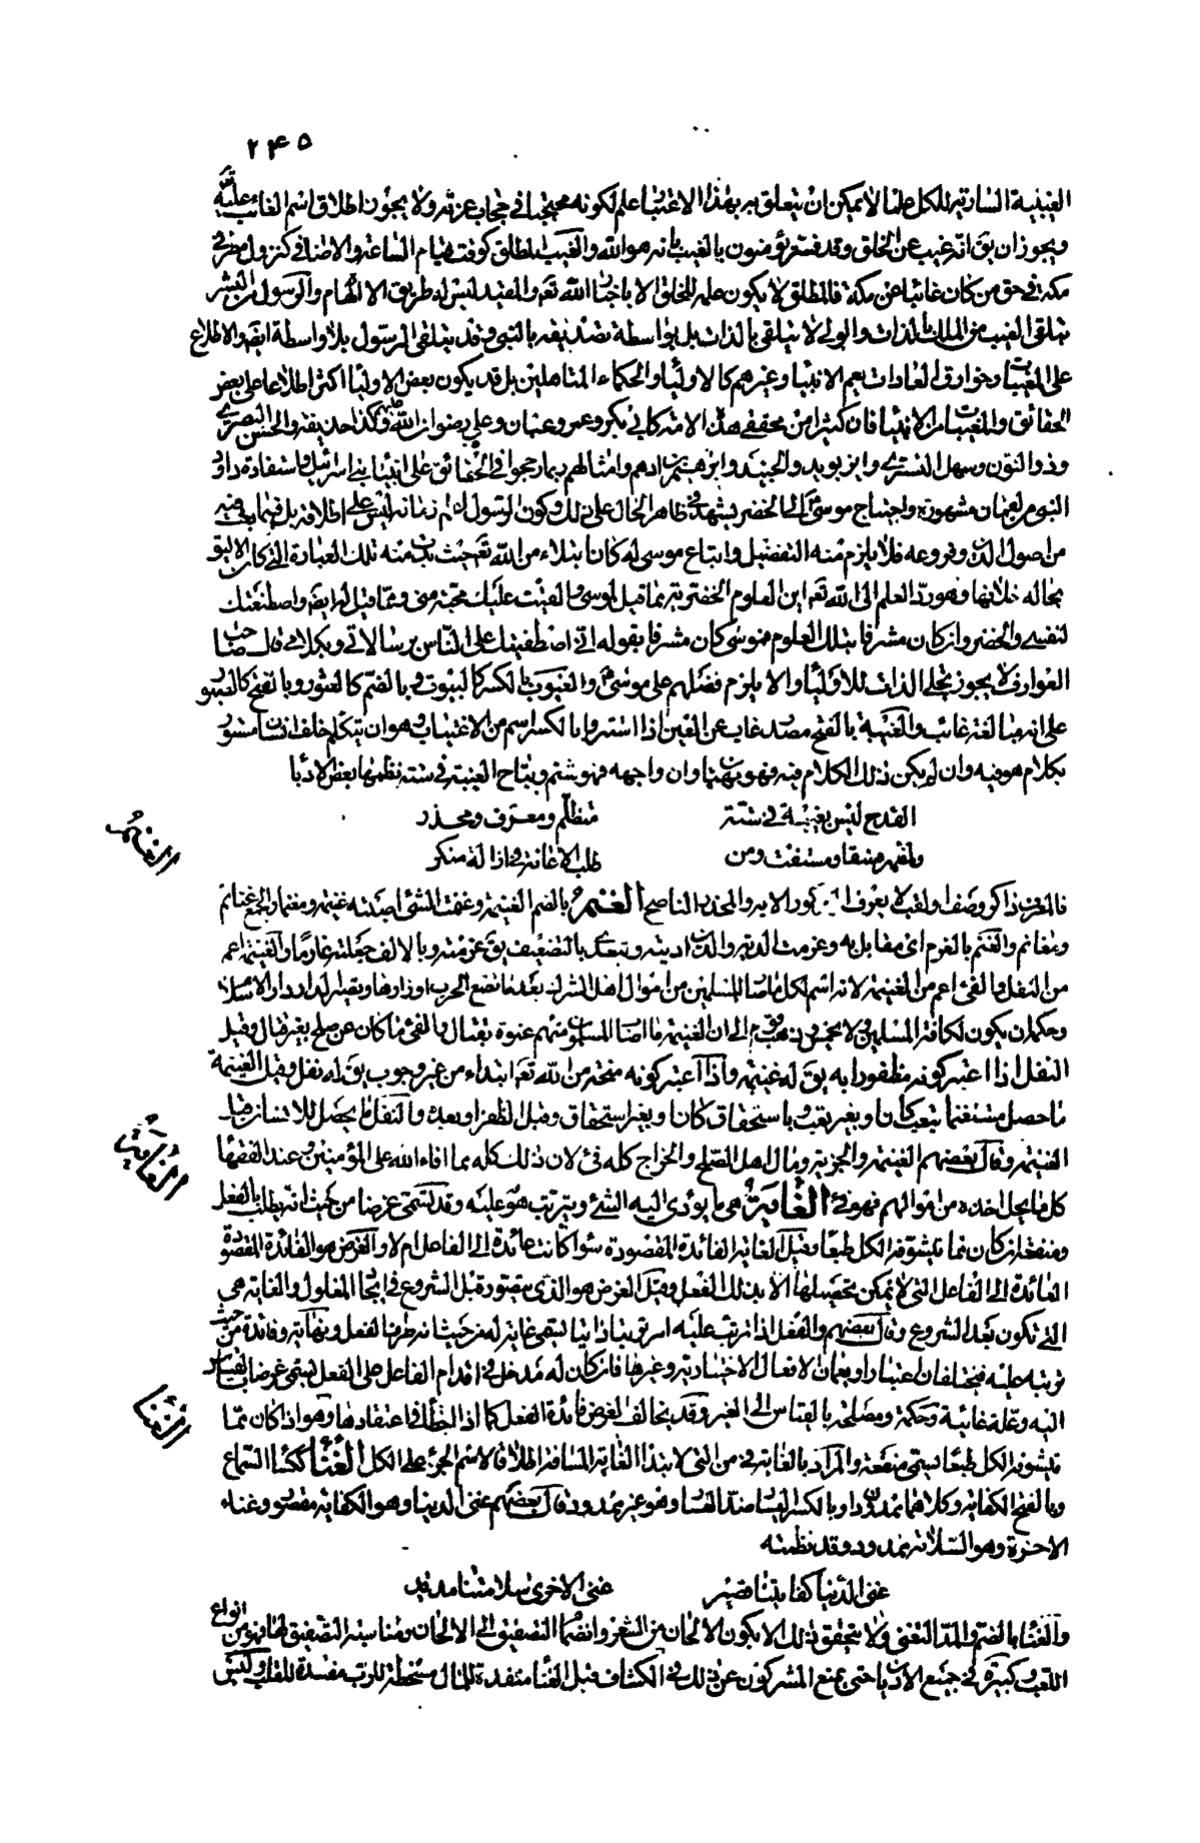 ٢٤٥
الغيبية السارية للكل علما لا يمكن ان يتعلق به بهذا الاعتبار علم لكونه محتجبا في حجاب عزته ولا يجوز اطلاق اسم الغائب عليه
ويجوز ان يق انه غيب عن الخلق وقد فسر يؤمنون بالغيب بانه هو الله والغيب المطلق كوقت قيام الساعة والاضافي كنزول المطر في
مكة في حق من كان غائبا عن مكة فالمطلق لا يكون علمه للخلق الا باخبار الله تع والمقيد ليس له طريق الا الالهام والرسول من البشر
يتلقى الغيب من الملك بالذات والولي لا يتلقى بالذات بل بواسطة تصديقه بالنبي وقد يتلقى الرسول بلا واسطة ايض والاطلاع
على المغيبات وخوارق العادات يعم الانبياء وغيرهم كالاولياء والحكماء المتالهين بل قد يكون بعض الاولياء اكثر اطلاعا على بعض
الحقائق والمغيبات من الانبياء فان كثيرا من محققي هذه الامة كابي بكر وعمر وعثمان وعلي رضوان الله عليهم وكذا حذيفة والحسن البصري
وذو النون وسهل التستري وابو يزيد والجنيد وابرهيم بن ادهم وامثالهم ربما رجحوا في الحقائق على انبياء بني اسرائيل واستفادة داود
النبي من لقمان مشهورة واحتياج موسى الى الخضر يشهد في ظاهر الحال على ذلك وكون الرسول اعلم زمانه ليس على اطلاقه بل فيما بعث فيه
من اصول الدين وفروعه فلا يلزم منه التفضيل وابتاع موسى له كان ابتلاء من الله تع حيث بدت منه تلك العبارة التي كان الاليق
بحاله خلافها وهو رد العلم الى الله تع اين العلوم الخضرية مما قيل لموسى والقيت عليك محبة مني ومما قيل له ايض واصطنعتك
لنفسي والخضر وان كان مشرفا بتلك العلوم فموسى كان مشرفا بقوله اني اصطفيتك على الناس برسالاتي وبكلامي قال صاحب
العوارف لا يجوز تجلي الذات للاولياء والا يلزم فضلهم على موسى والغيوب بالكسر كالبيوت وبالضم كالعشور وبالفتح كالغيور
على انه مبالغة غائب والغيبة بالفتح مصدر غاب عن العين اذا استتر وبالكسر اسم من الاغتياب وهو ان يتكلم خلف انسان مستور
بكلام هو فيه وان لم يكن ذلك الكلام فيه فهو بهتان وان واجهه فهو شتم ويباح الغيبة في ستة نظمها بعض الادبا
القدح ليس بغيبة في ستة متظلم ومعرف ومحذر
ولمظهر فسقا ومستفت ومن طلب الاعانة في ازالة منكر
فالمعرف ذاكر وصف او لقب لا يعرف الا به والمحذر الناصح الغنم بالضم الغنيمة وغنمت الشيء اصبته غنيمة ومغنما والجمع غنائم
ومغانم والغنم بالغرم اي مقابل به وغرمت الدية والدين اديته ويتعدى بالتضعيف يق غرمته وبالالف جعلته غارما والغنيمة اعم
من النفل والفيء اعم من الغنيمة لانه اسم لكل ما صار للمسلمين من اموال اهل الشرك بعد ما تضع الحرب اوزارها ويصير الدار دار الاسلام
وحكمه ان يكون لكافة المسلمين ولا يخمس وذهب قوم الى ان الغنيمة ما اصاب المسلمون منهم عنوة بقتال والفيء ما كان عن صلح بغير قتال وقيل
النفل اذا اعتبر كونه مظفورا به يق له غنيمة واذا اعتبر كونه منحة من الله تع ابتداء من غير وجوب يق له نفل وقيل الغنيمة
ما حصل مستغنما بتعب كان او بغير تعب وباستحقاق كان او بغير استحقاق وقبل الظفر او بعده والنفل ما يحصل للانسان قبل
الغنيمة وقال بعضهم الغنيمة والجزية ومال اهل الصلح والخراج كله فيء لان ذلك كله مما افاء الله على المؤمنين وعند الفقهاء
كل ما يحل اخذه من اموالهم فهو فيء الغاية هي ما يؤدي اليه الشيء ويترتب هو عليه وقد تسمى غرضا من حيث انه يطلب بالفعل
ومنفعة ان كان مما يتشوقه الكل طبعا وقيل الغاية الفائدة المقصودة سواء كانت عائدة الى الفاعل ام لا والغرض هو الفائدة المقصودة
العائدة الى الفاعل التي لا يمكن تحصيلها الا بذلك الفعل وقيل الغرض هو الذي يتصور قبل الشروع في ايجاد المعلول والغاية هي
التي تكون بعد الشروع وقال بعضهم والفعل اذا ترتب عليه امر ترتبا ذاتيا يسمى غاية له من حيث انه طرف الفعل ونهايته وفائدة من حيث
ترتبه عليه فيختلفان اعتبارا ويعمان الافعال الاختيارية وغيرها فان كان له مدخل في اقدام الفاعل على الفعل يسمى غرضا بالقياس
اليه وعلة غائية وحكمة ومصلحة بالقياس الى الغير وقد يخالف الغرض فائدة الفعل كما اذا اخطأ في اعتقادها وهو اذا كان مما
يتشوقه الكل طبعا يسمى منفعة والمراد بالغاية في من التي لابتداء الغاية المسافة اطلاقا لاسم الجزء على الكل الغناء ككساء السماع
وبالفتح الكفاية وكلاهما ممدودان وبالكسر اليسار ضد الفقر وهو غير ممدود وقال بعضهم غنى الدنيا وهو الكفاية مقصور وغناء
الاخرة وهو السلامة ممدود وقد نظمته
غنى الدنيا كفايتنا قصير غنى الاخرى سلامتنا مديد
والغناء بالضم والمد التغني ولا يتحقق ذلك الا بكون الالحان من الشعر وانضمام التصفيق الى الالحان ومناسبة التصفيق لها فهو من انواع
اللعب وكبيرة في جميع الاديان حتى يمنع المشركون عن ذلك في الكشاف قيل الغناء منفدة للمال مسخطة للرب مفسدة للقلب وليس
الغنم
الغاية
الغناء